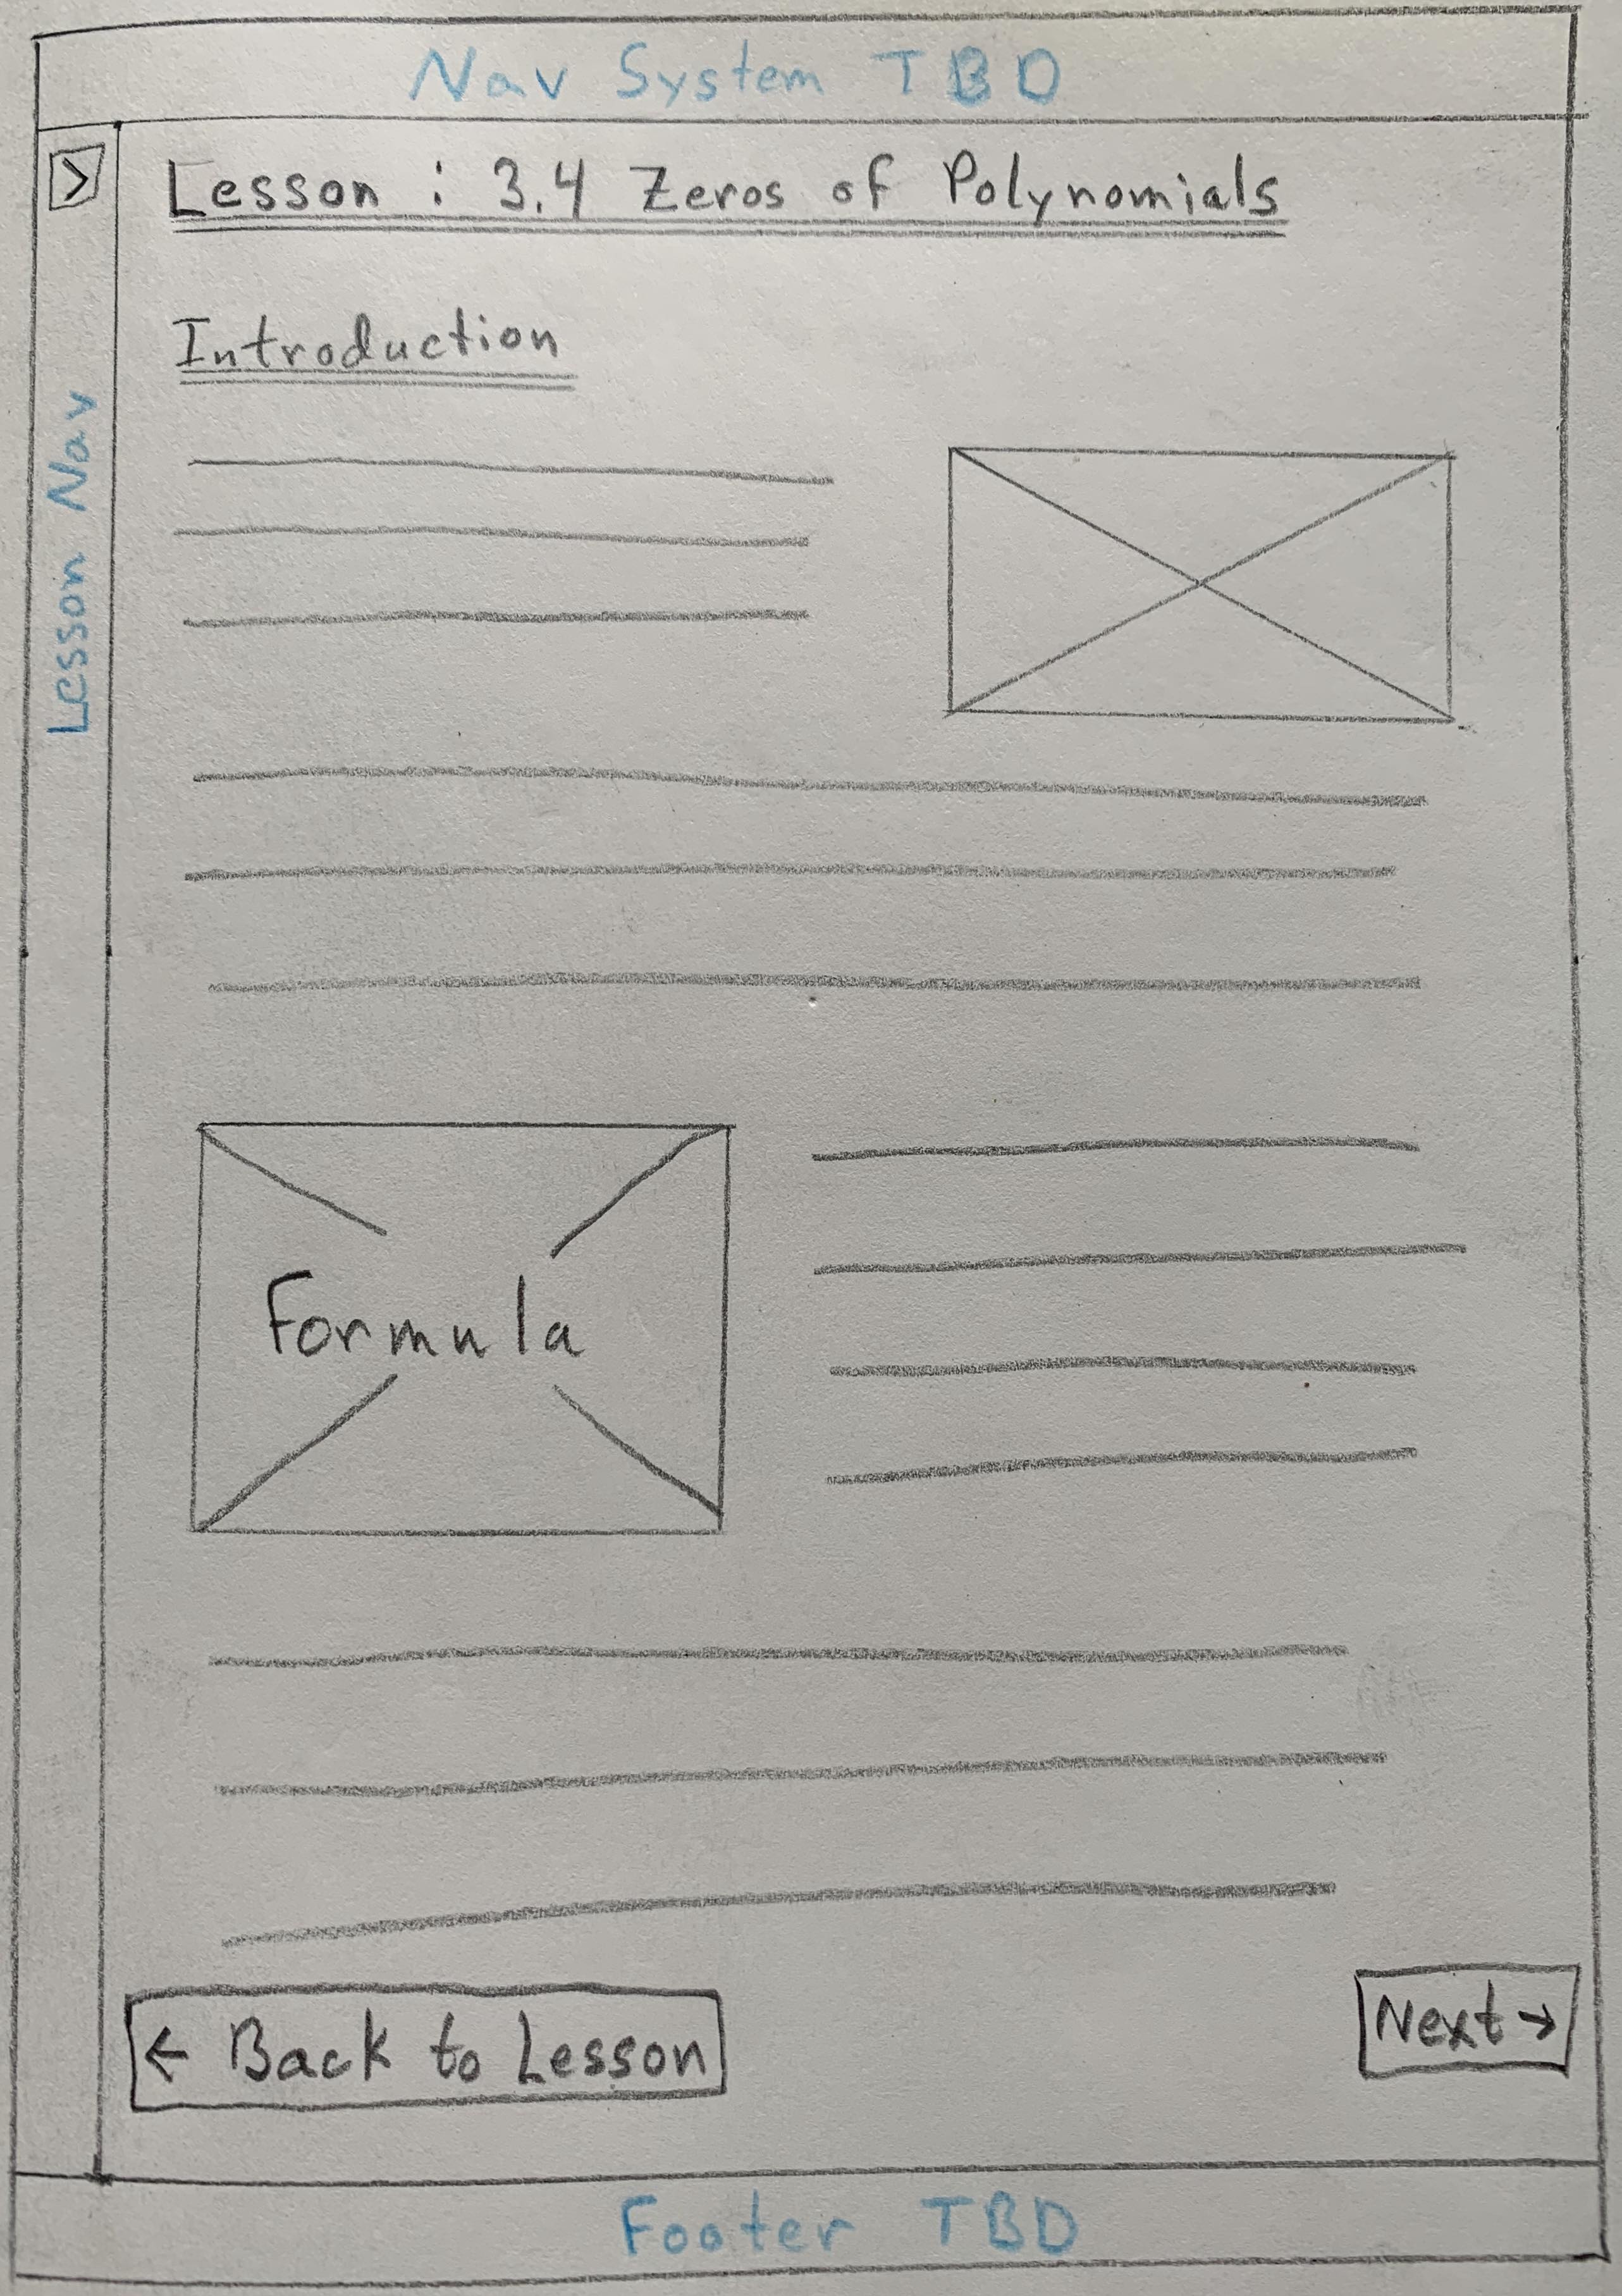 Nav System TBD
>
Lesson : 3.4 Zeros of Polynomials
Lesson Nav
Introduction
Formula
← Back to Lesson
Next →
Footer TBD